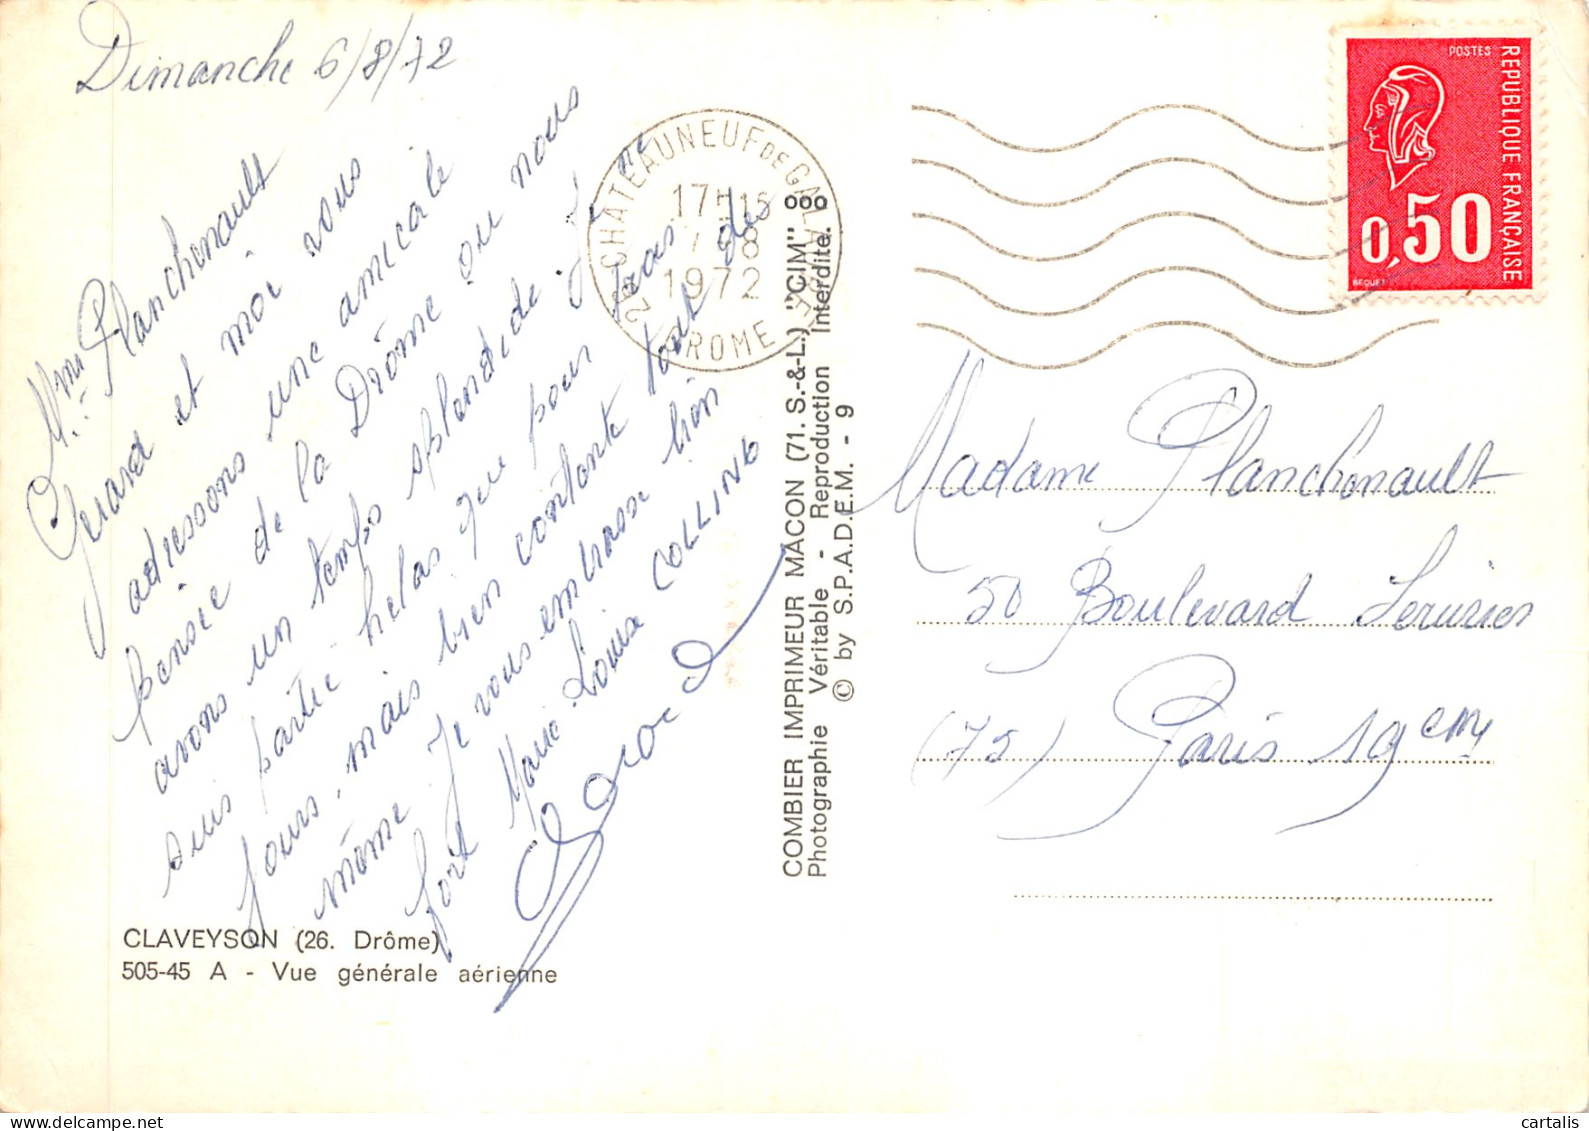 Dimanche 6/8/72
Mme Planchenault
Gerard et moi vous
adressons une amicale
pensée de la Drôme ou nous
avons un temps splendide. Je ne
suis partie helas que pour pas de
jours, mais bien contente tout
même. Je vous embrasse bien
fort Marie Louise COLLING
Gerard
CLAVEYSON (26. Drôme)
505-45 A - Vue générale aérienne
26 CHATEAUNEUF DE GALAURE
17H15
7-8
1972
DROME
COMBIER IMPRIMEUR MACON (71. S.-&-L.) "CIM"
Photographie Véritable - Reproduction Interdite.
© by S.P.A.D.E.M. - 9
POSTES
REPUBLIQUE FRANÇAISE
0,50
BEQUET
Madame Planchenault
50 Boulevard Serurier
(75) Paris 19eme
cartalis